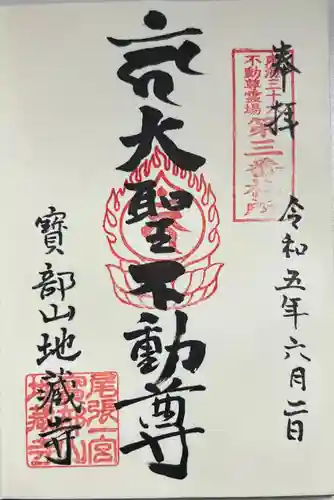 奉拝
東海三十六
不動尊霊場
第三番札所
令和五年六月二日
大聖不動尊
寶部山地蔵寺
尾張一宮
地蔵寺